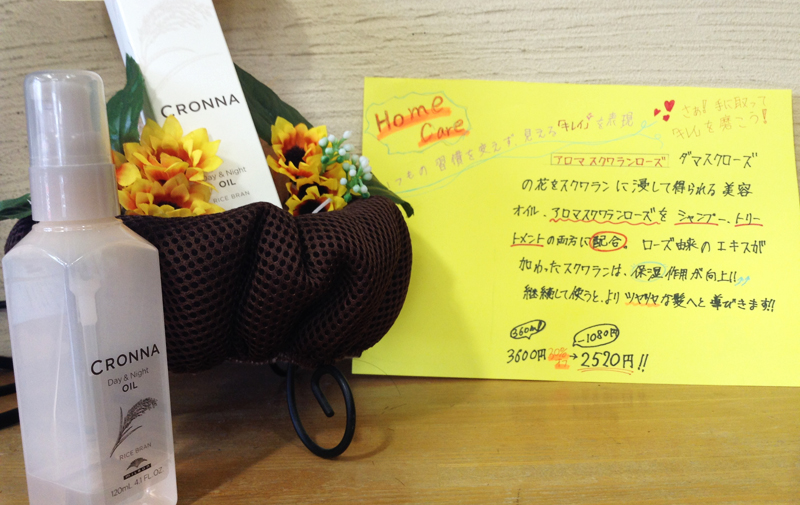 CRONNA
Day & Night
OIL
RICE BRAN
CRONNA
Day & Night
OIL
RICE BRAN
MILBON
120mL 4.1 FL. OZ
Home
Care
さぁ!手に取って
キレイを磨こう!
いつもの習慣を変えず、見えるキレイを表現
アロマスクワランローズ ダマスクローズ
の花をスクワランに浸して得られる美容
オイル、アロマスクワランローズをシャンプー、トリー
トメントの両方に配合。ローズ由来のエキスが
加わったスクワランは、保湿作用が向上!!
継続して使うと、よりツヤツヤな髪へと導びきます!!
360ml
-1080円
3600円→2520円!!